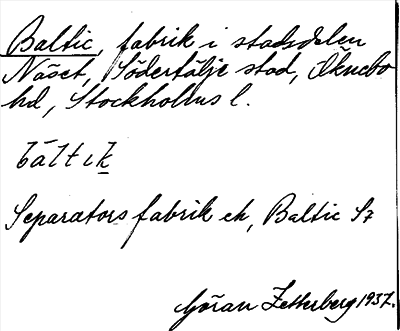 Baltic, fabrik i stadsdelen
Näset, Södertälje stad, Öknebo
hd, Stockholms l.
bált ik
Separators fabrik eh, Baltic
Göran Zetterberg 1937.